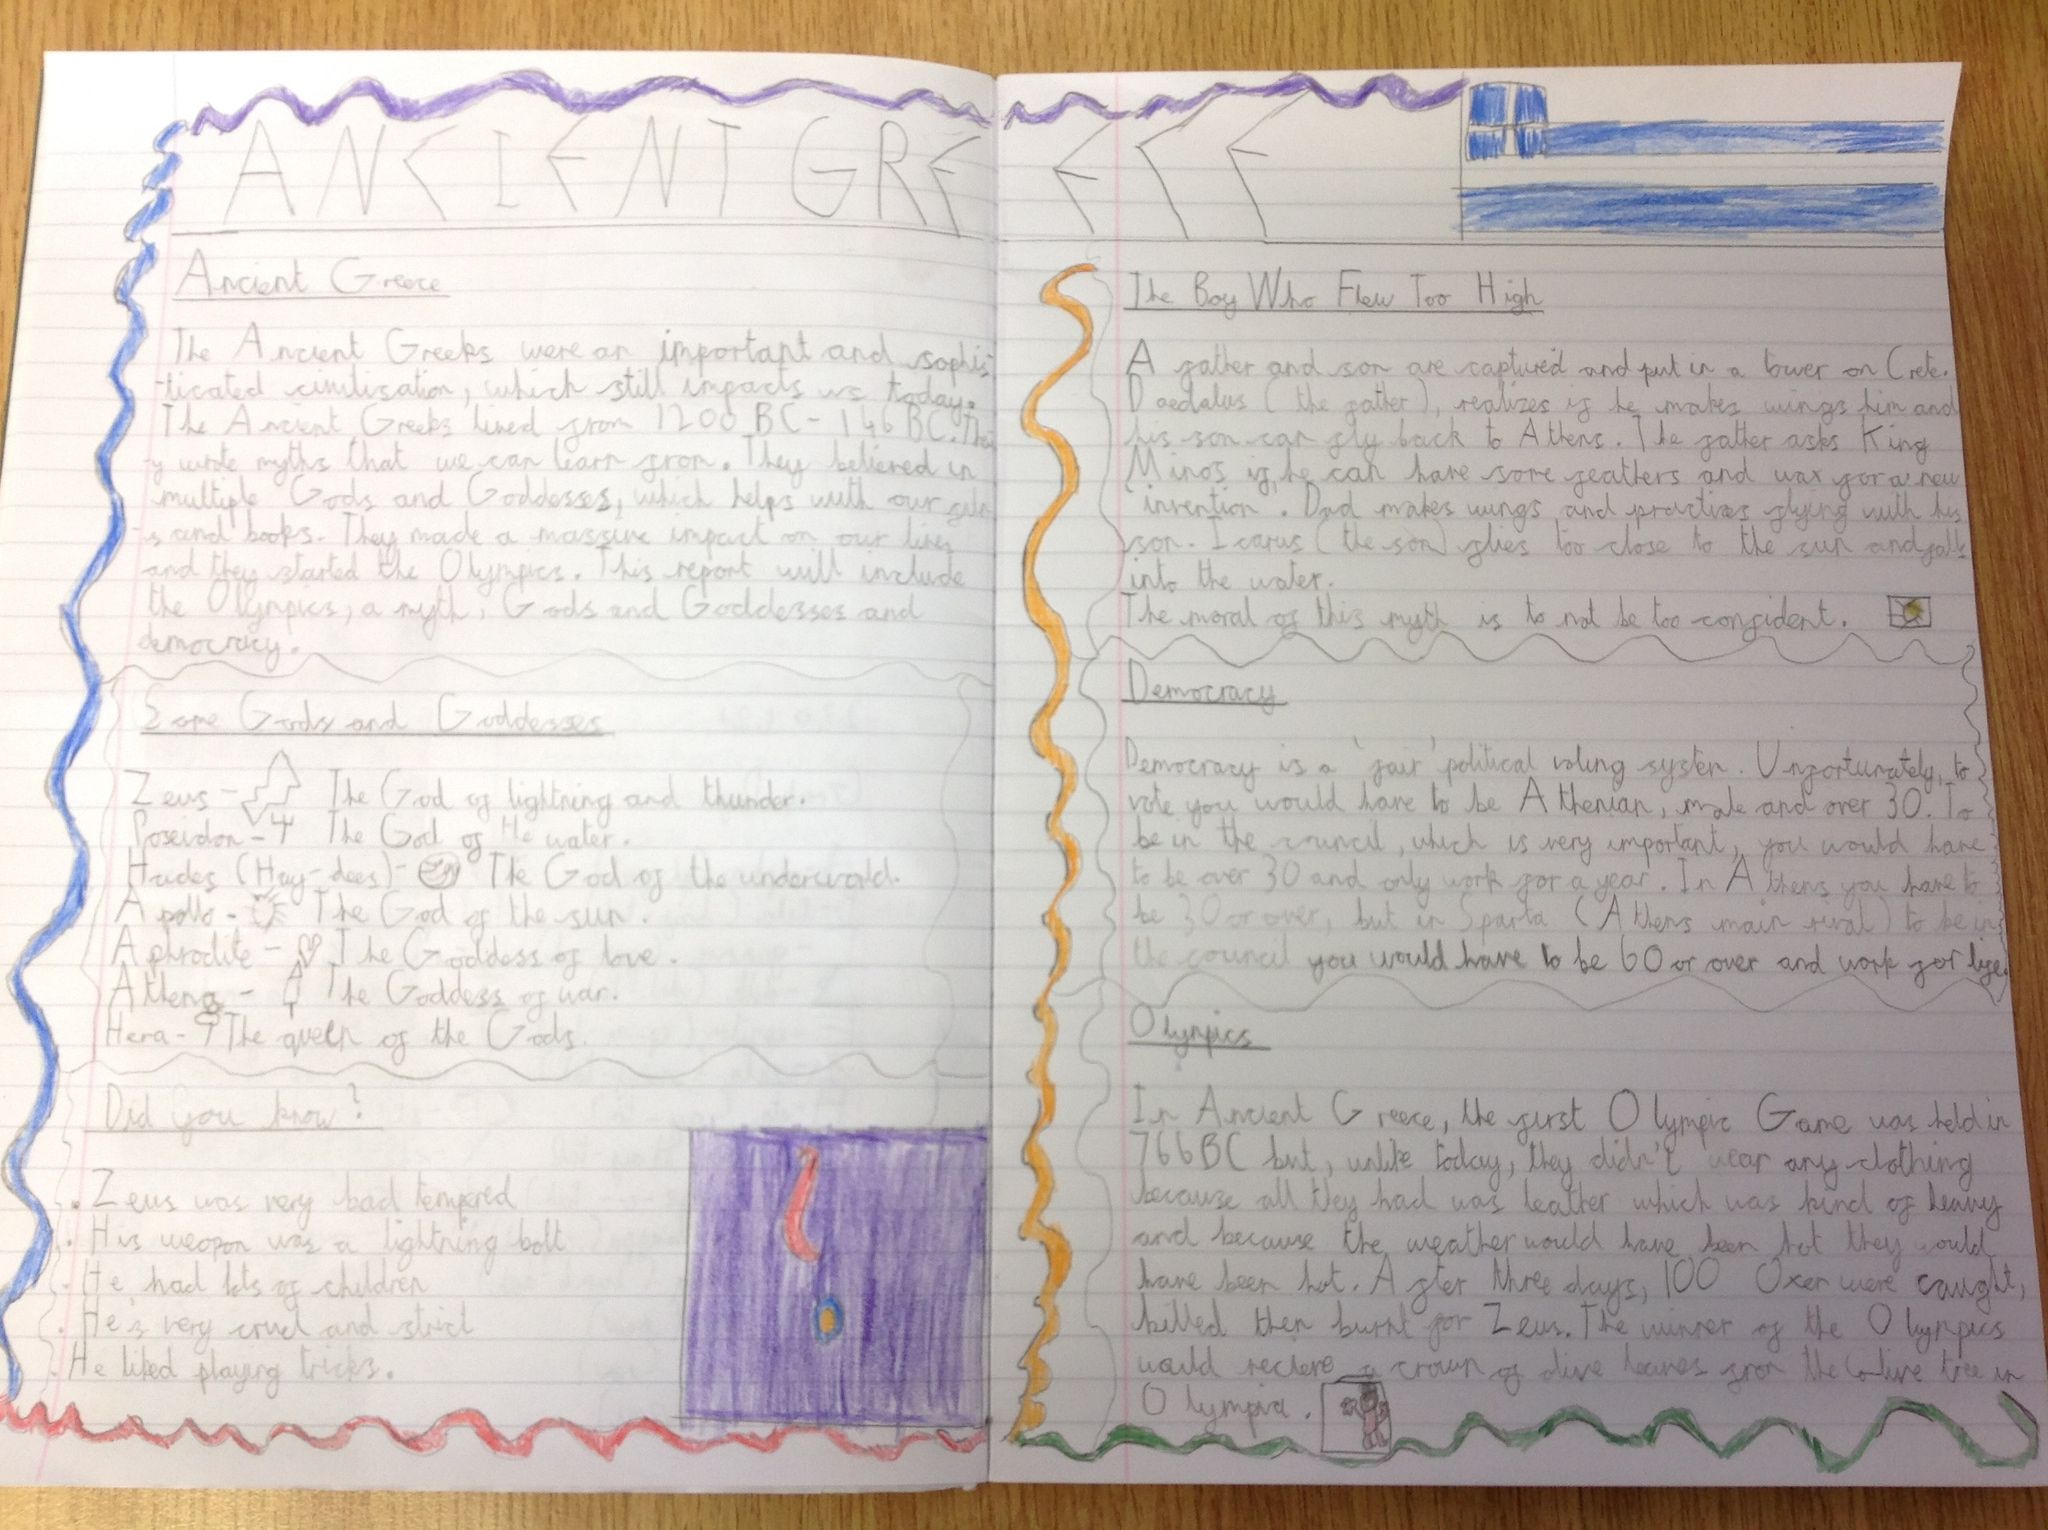 ANCIENT GREECE
Ancient Greece
The Ancient Greeks were an important and sophis
-ticated civilisation, which still impacts us today.
The Ancient Greeks lived from 1200 BC - 146 BC. The
y wrote myths that we can learn from. They believed in
multiple Gods and Goddesses, which helps with our film
s and books. They made a massive impact on our lives
and they started the Olympics. This report will include
the Olympics, a myth, Gods and Goddesses and
democracy.
Some Gods and Goddesses
Zeus - The God of lightning and thunder.
Poseidon - The God of the water.
Hades (Hay-dees) - The God of the underworld.
Apollo - The God of the sun.
Aphrodite - The Goddess of love.
Athena - The Goddess of war.
Hera - The queen of the Gods.
Did you know?
. Zeus was very bad tempered
. His weapon was a lightning bolt
. He had lots of children
. He's very cruel and strict
. He liked playing tricks.
The Boy Who Flew Too High
A father and son are captured and put in a tower on Crete.
Daedalus (the father), realizes if he makes wings him and
his son can fly back to Athens. The father asks King
Minos if he can have some feathers and wax for a new
'invention'. Dad makes wings and practizes flying with his
son. Icarus (the son) flies too close to the sun and falls
into the water.
The moral of this myth is to not be too confident.
Democracy
Democracy is a 'fair' political voting system. Unfortunately, to
vote you would have to be Athenian, male and over 30. To
be in the council, which is very important, you would have
to be over 30 and only work for a year. In Athens you have to
be 30 or over, but in Sparta (Athens main rival) to be in
the council you would have to be 60 or over and work for life.
Olympics
In Ancient Greece, the first Olympic Game was held in
766 BC but, unlike today, they didn't wear any clothing
because all they had was leather which was kind of heavy
and because the weather would have been hot they would
have been hot. After three days, 100 Oxen were caught,
killed then burnt for Zeus. The winner of the Olympics
would recieve a crown of olive leaves from the olive tree in
Olympia.